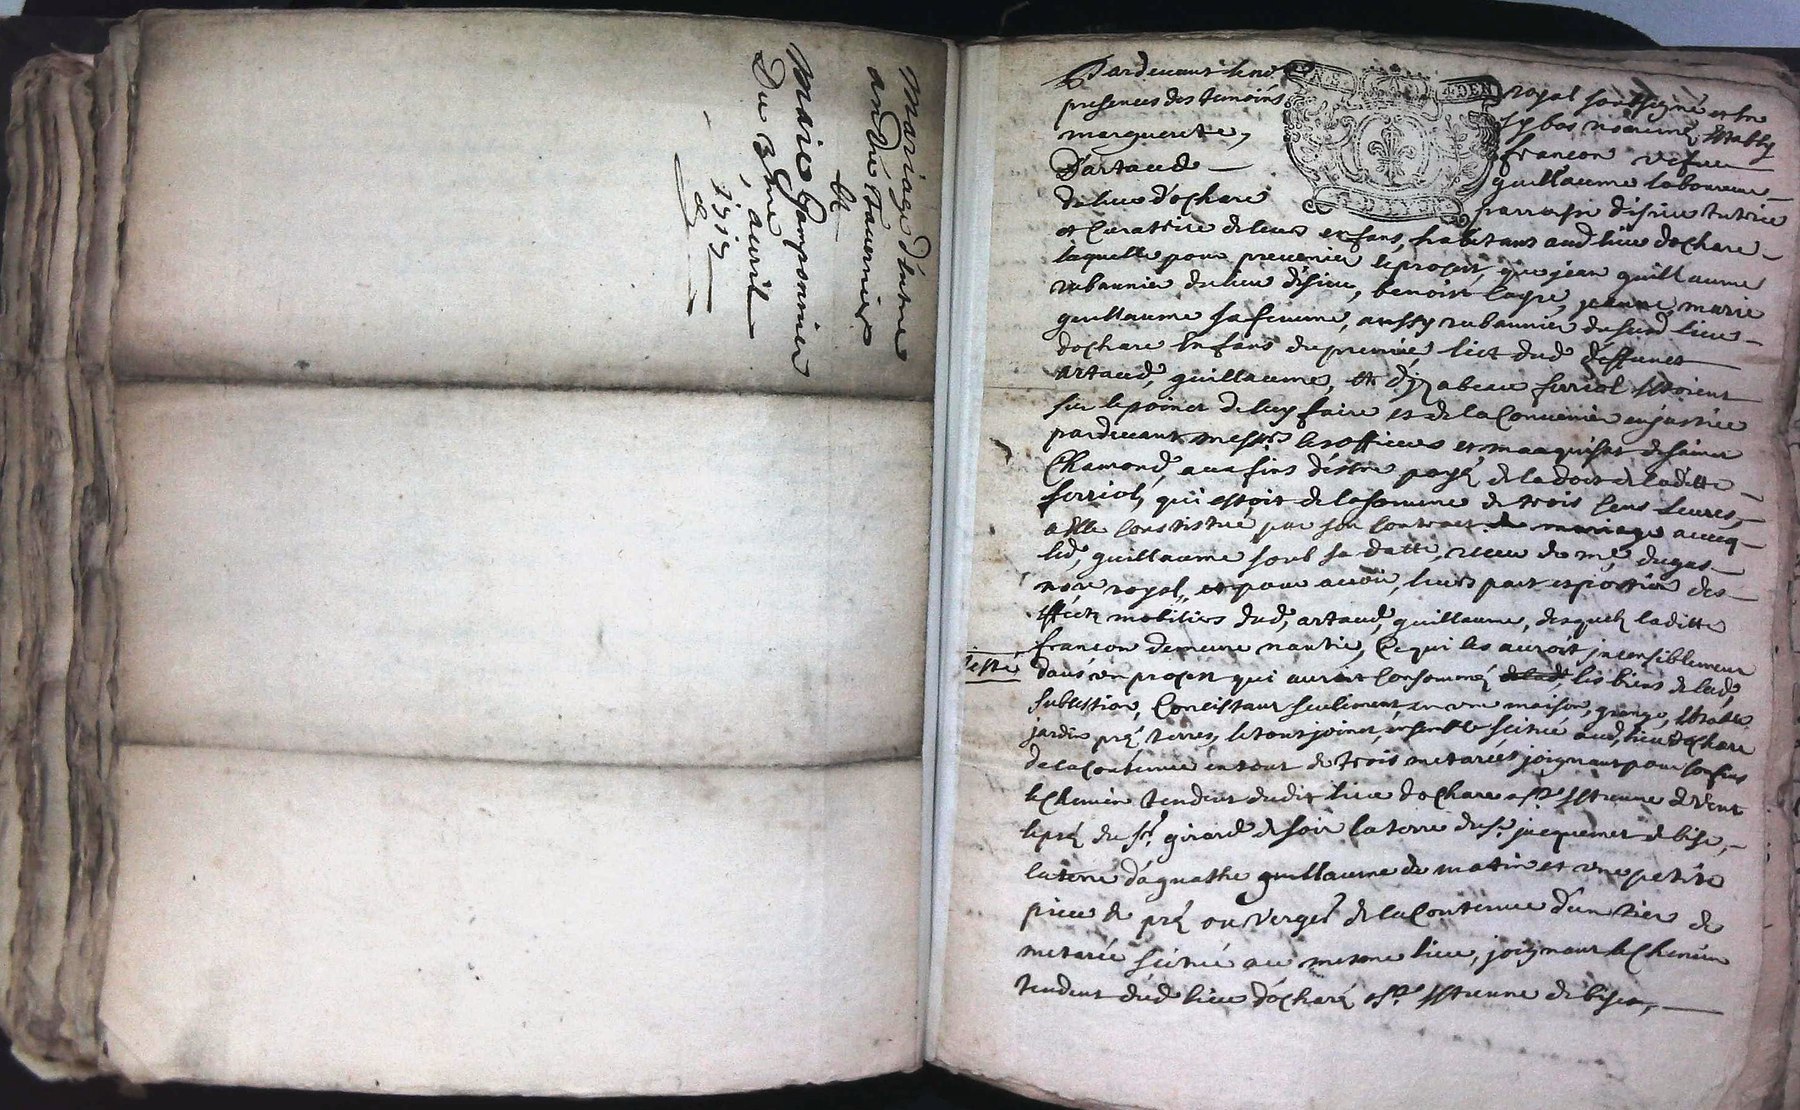 Mariage d'entre
andré Tavernier
et
Marie Gamponnier
Du 3eme avril
1713
Pardevant le no.re royal soubsigné et en
presences des temoins cy bas nommez establie
marguerite francon vefve
D'artaud guillaume laboureur
du lieu d'ochare parroisse d'isieu tutrice
et Curatrice de leurs enfans, habitant aud. lieu dochare
laquelle pour prevenir le procest, que jean guillaume
rubannier du lieu d'isieu, benoist jeanne marie
guillaume sa femme, aussy rubannier dusud. lieu
dochare Enfans du premier lict dud. deffunct
artaud, guillaume, et d'yzabeau ferriol estoient
sur le point de luy faire et de la Convenir en justice
pardevant mess.rs les officiers et marquisat de saint
Chamond, aux fins d'estre payé de la dot de laditte
ferriol, qui estoit de la somme de trois Cens livres,
a elle constistuée par son Contract de mariage avecq
led. guillaume soub sa datte, receu de me. dugas
no.re royal, et pour avoir, leurs part et portion des
effects mobiliers dud. artaud, guillaume, desquels laditte
francon demeure nantie, Ce qui les auroit insensiblement
dans un procest qui auroit Consommé les biens de lad.
jetté
subcession, Concistant seulement en une maison, grange, Estable
jardin pré, terres, le tout joint, ensemble scitué aud. lieu d'ochare
de la Contenue en tout de trois metarées joignant pour Confins
le Chemin tendent dudit lieu dochare a st. Estienne de vent
le pré du sr. girard de soir la terre du sr. jacquemet de bise,
la terre d'agnathe guillaume de matin et une petite
piece de pré ou verger de la Contenue d'un tier de
metarée scitué au mesme lieu, joignant le Chemin
tendent dud. lieu d'ochare a st. Estienne de bise,